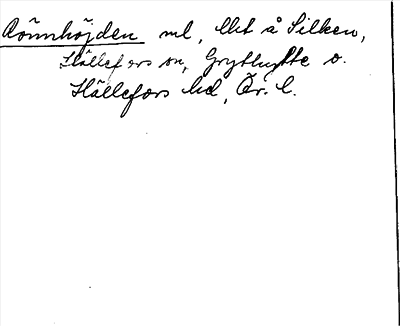 Rönnhöjden ml, blst å Silken,
Hällefors sn, Grythytte o.
Hällefors bd, Ör. l.